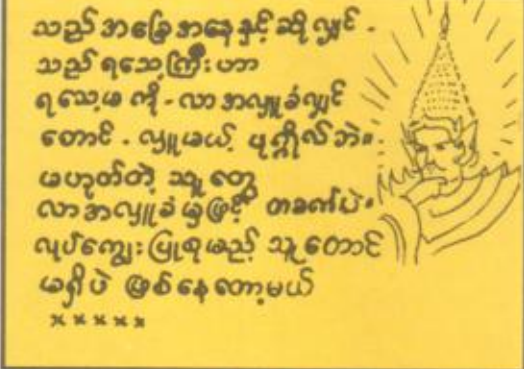 သည်အခြေအနေနှင့်ဆိုလျှင်-
သည်ရသေ့ကြီးဟာ
ရသေ့မကို-လာအလှူခံလျှင်
တောင်-လှူမယ့် ပုဂ္ဂိုလ်ဘဲ။
မဟုတ်တဲ့ သူတွေ
လာအလှူခံမှဖြင့် တခဏပဲ။
လုပ်ကျွေးပြုစုမည့် သူတောင်
မရှိပဲ ဖြစ်နေတော့မယ်
×××××